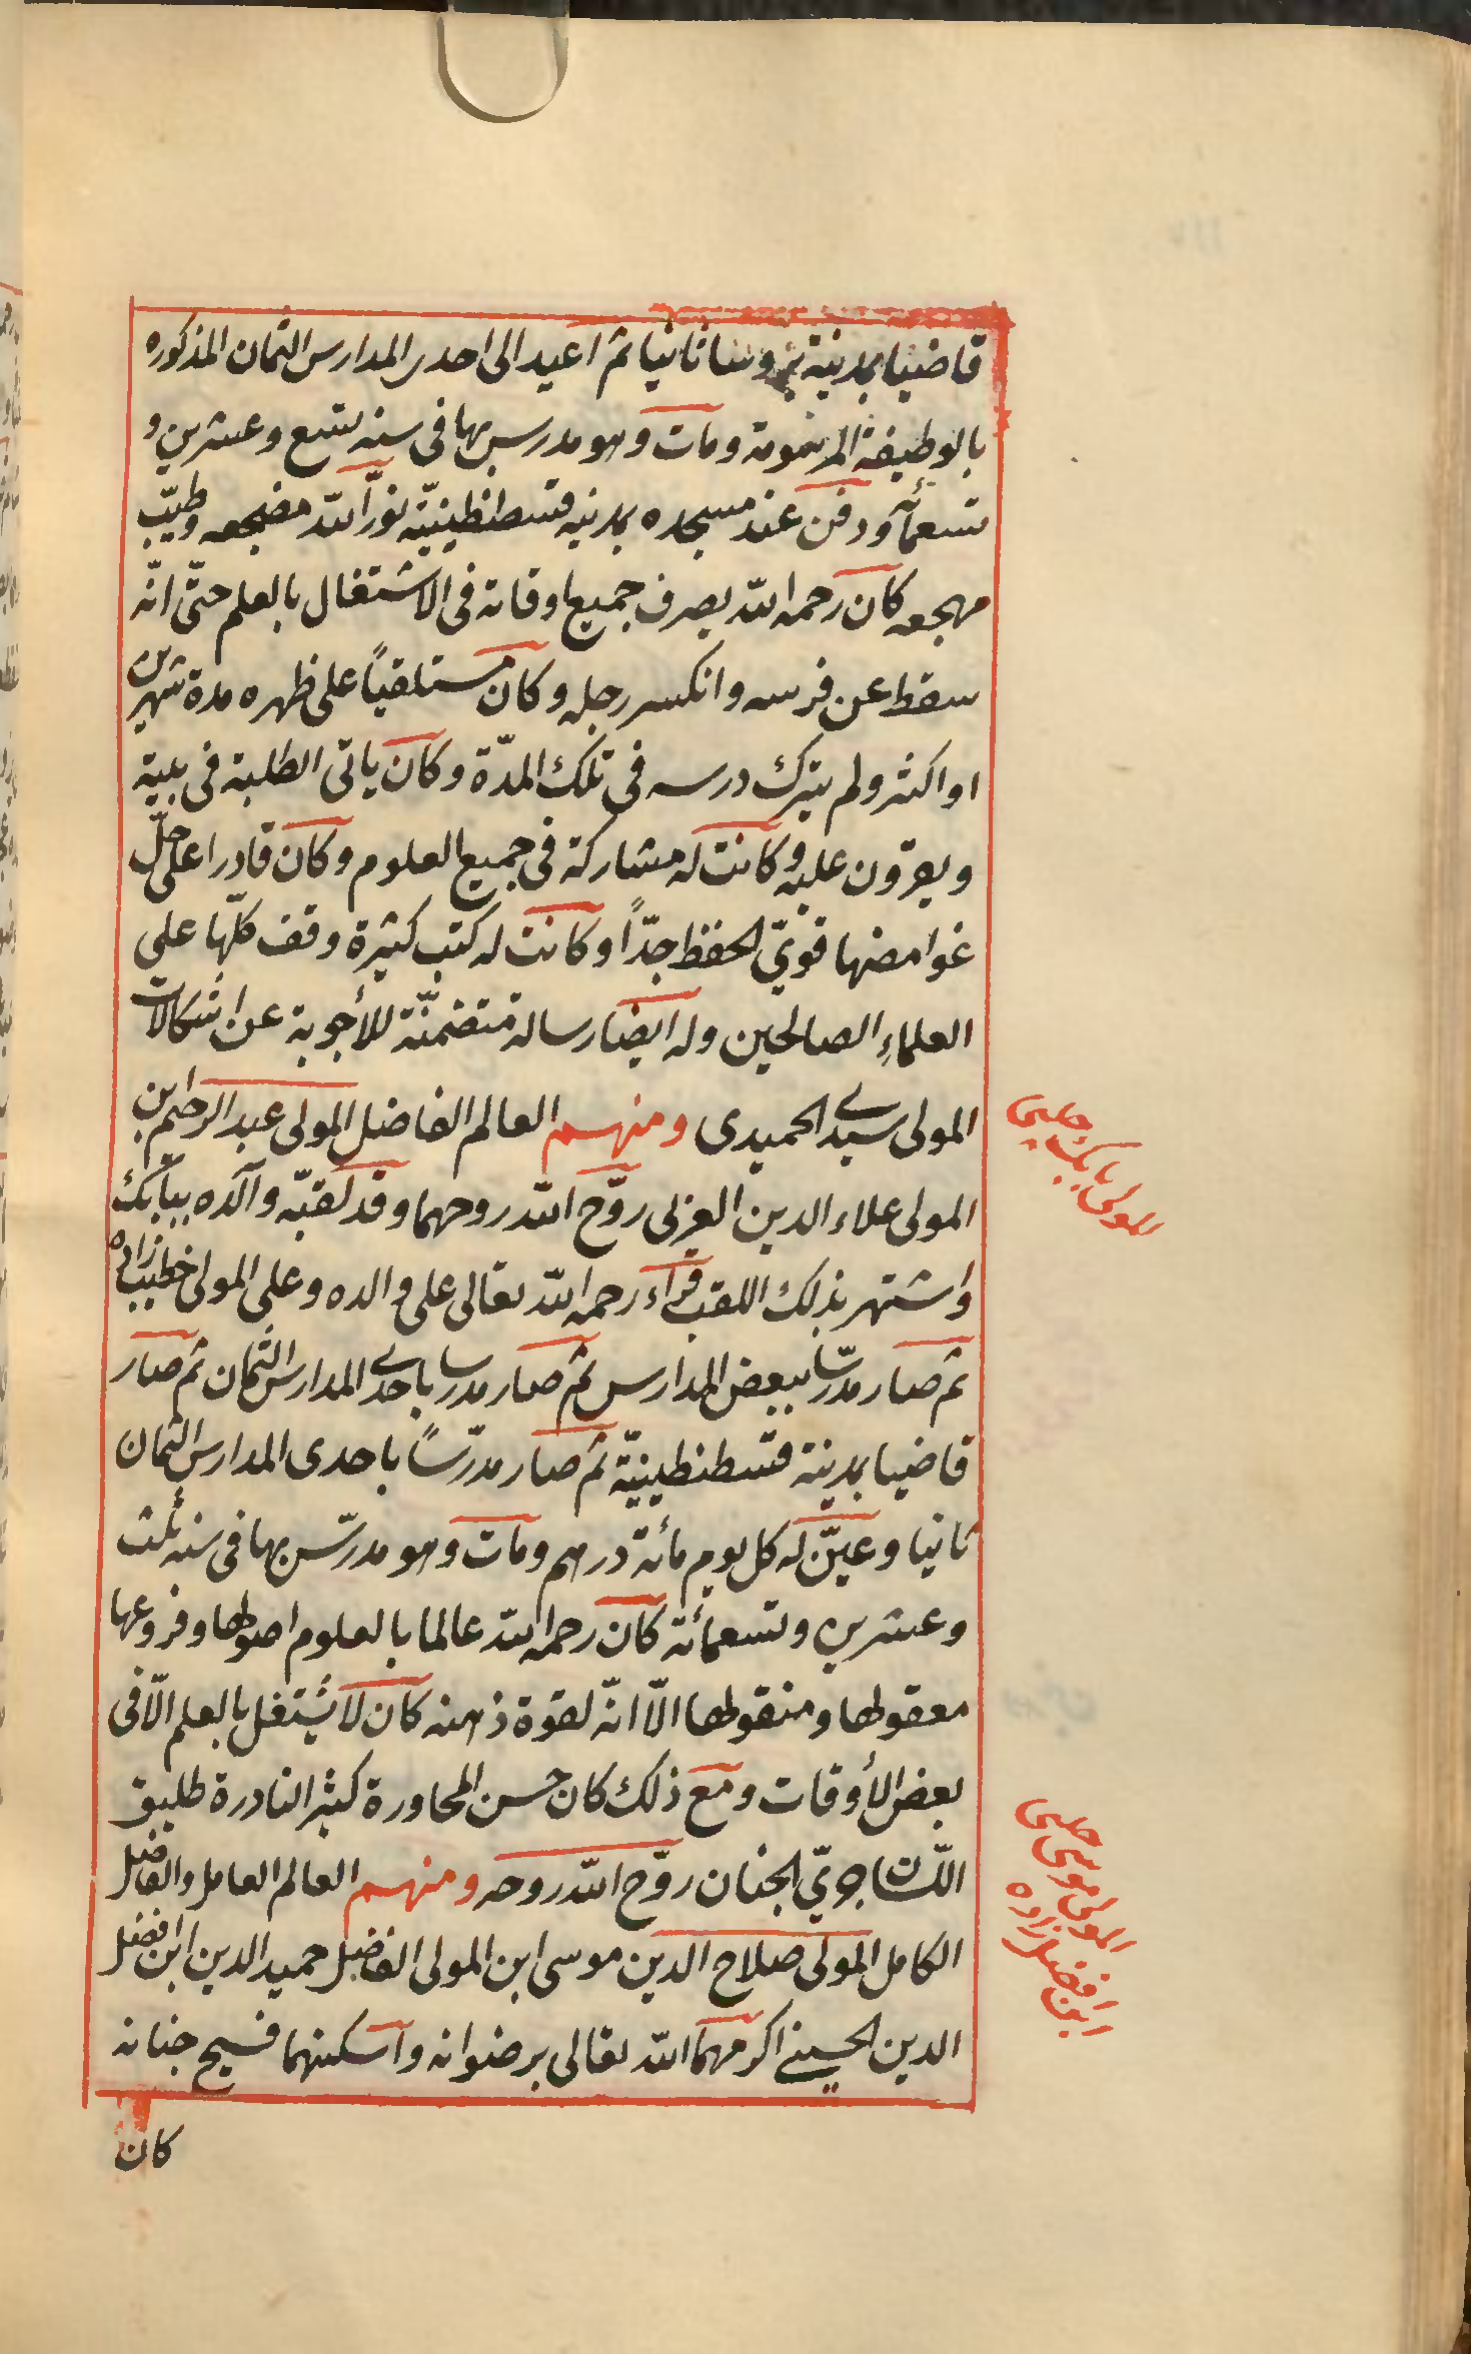 قاضيا بمدينة بروسا ثانيا ثم اعيد الى احدى المدارس الثمان المذكوره
بالوظيفة المرسومة ومات وهو مدرس بها فى سنه تسع وعشرين و
تسعمأئه ودفن عند مسجده بمدينه قسطنطينيّة نوّر الله مضجعه وطيّب
مهجعه كان رحمه الله يصرف جميع اوقاته فى الاشتغال بالعلم حتّى انّه
سقط عن فرسه وانكسر رجله وكان مستلقياً على ظهره مدة شهرين
او اكثر ولم يترك درسه فى تلك المدّة وكان ياتى الطلبة فى بيته
ويقرؤن عليه وكانت له مشاركة فى جميع العلوم وكان قادرا على حلّ
غوامضها قويّ الحفظ جدّاً وكانت له كتب كثيرة وقف كلّها على
العلماءِ الصالحين وله ايضا رسالة متضمنّة للأجوبة عن اشكالات
المولى سيدى الحميدى ومنهم العالم الفاضل المولى عبد الرحيم بن
المولى علاء الدين العربى روّح الله روحهما وقد لقبّه والده ببابك
واشتهر بذلك اللقب قرأء رحمه الله تعالى على والده وعلى المولى خطيب زاده
ثم صار مدرّسا ببعض المدارس ثم صار مدرسا باحدى المدارس الثمان ثم صار
قاضيا بمدينة قسطنطينيّة ثم صار مدرّساً باحدى المدارس الثمان
ثانيا وعيّن له كل يوم مأئة درهم ومات وهو مدرّس بها فى سنه ثلث
وعشرين وتسعمأئة كان رحمه الله عالما بالعلوم اصولها وفروعها
معقولها ومنقولها الّا انّه لقوة ذهنه كان لا يشتغل بالعلم الّا فى
بعض الأوقات ومع ذلك كان حسن المحاورة كثير النادرة طليق
اللّسان جريّ الجنان روّح الله روحه ومنهم العالم العامل والفاضل
الكامل المولى صلاح الدين موسى ابن المولى الفاضل حميد الدين ابن افضل
الدين الحسينى اكرمهما الله تعالى برضوانه واسكنهما فسيح جنانه
كان
المولى بابك چلبى
المولى موسى چلبى
ابن افضل زاده